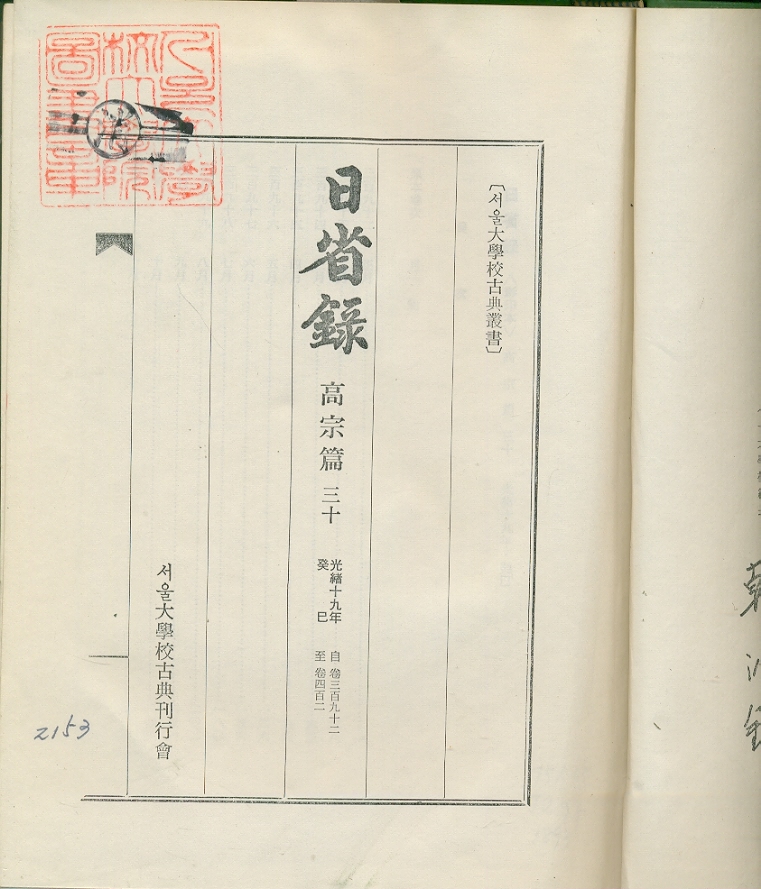 〔서울大學校古典叢書〕
日省錄
高宗篇 三十
光緖十九年
癸巳
自 卷三百九十二
至 卷四百二
서울大學校古典刊行會
2153